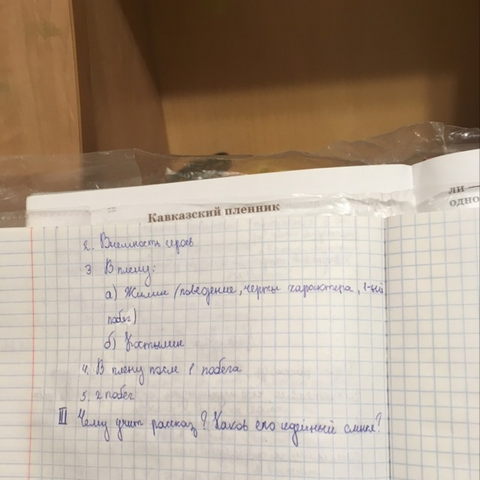 ли
одно
Кавказский пленник
2. Внешность героев
3 В плену:
а) Жилин (поведение, черты характера, 1-ый
побег)
б) Костылин
4. В плену после 1 побега
5. 2 побег
III Чему учит рассказ? Каков его идейный смысл?